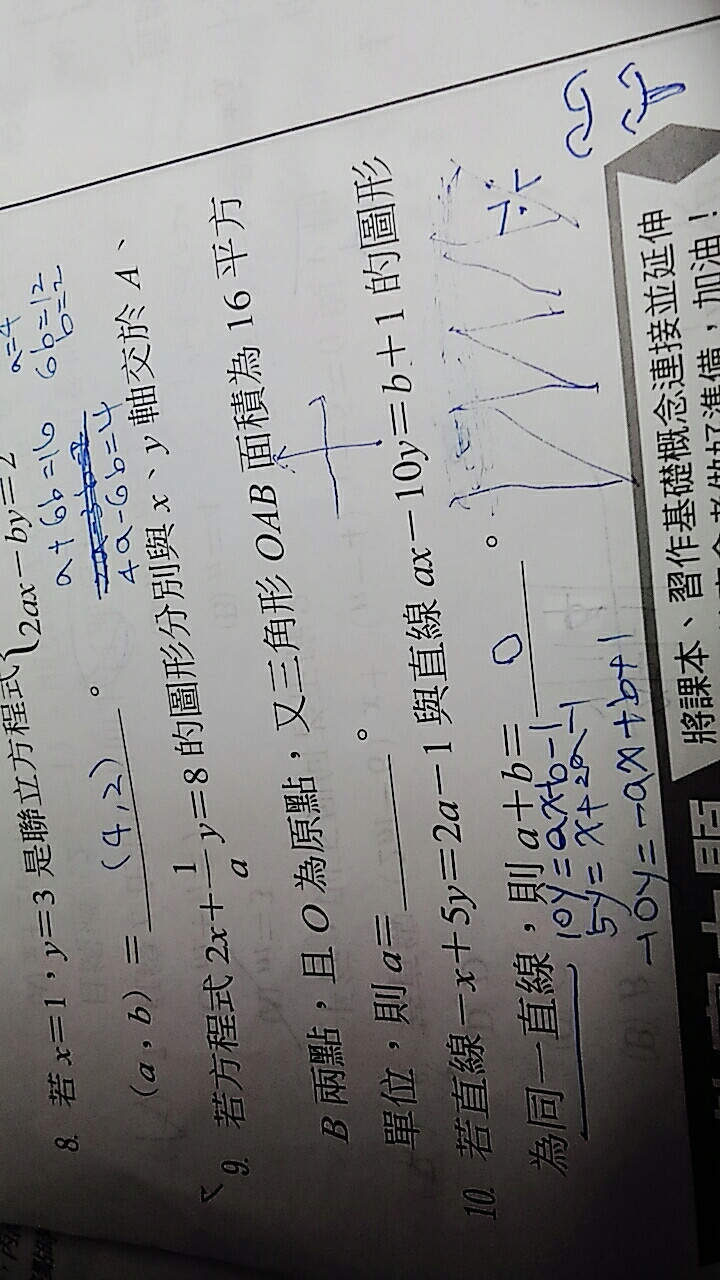 8. 若 x=1,y=3 是聯立方程式{2ax-by=2
a=4
a+6b=16 6b=12
b=2
4a-6b=4
(a,b)=(4,2)。
9. 若方程式 2x+1/a y=8 的圖形分別與 x、y 軸交於 A、
B 兩點,且 O 為原點,又三角形 OAB 面積為 16 平方
單位,則 a=____。
10. 若直線 -x+5y=2a-1 與直線 ax-10y=b+1 的圖形
為同一直線,則 a+b=0。
10y=ax-b-1
5y=x+2a-1
-10y=-ax+b+1
將課本、習作基礎概念連接並延伸
做好準備,加油!